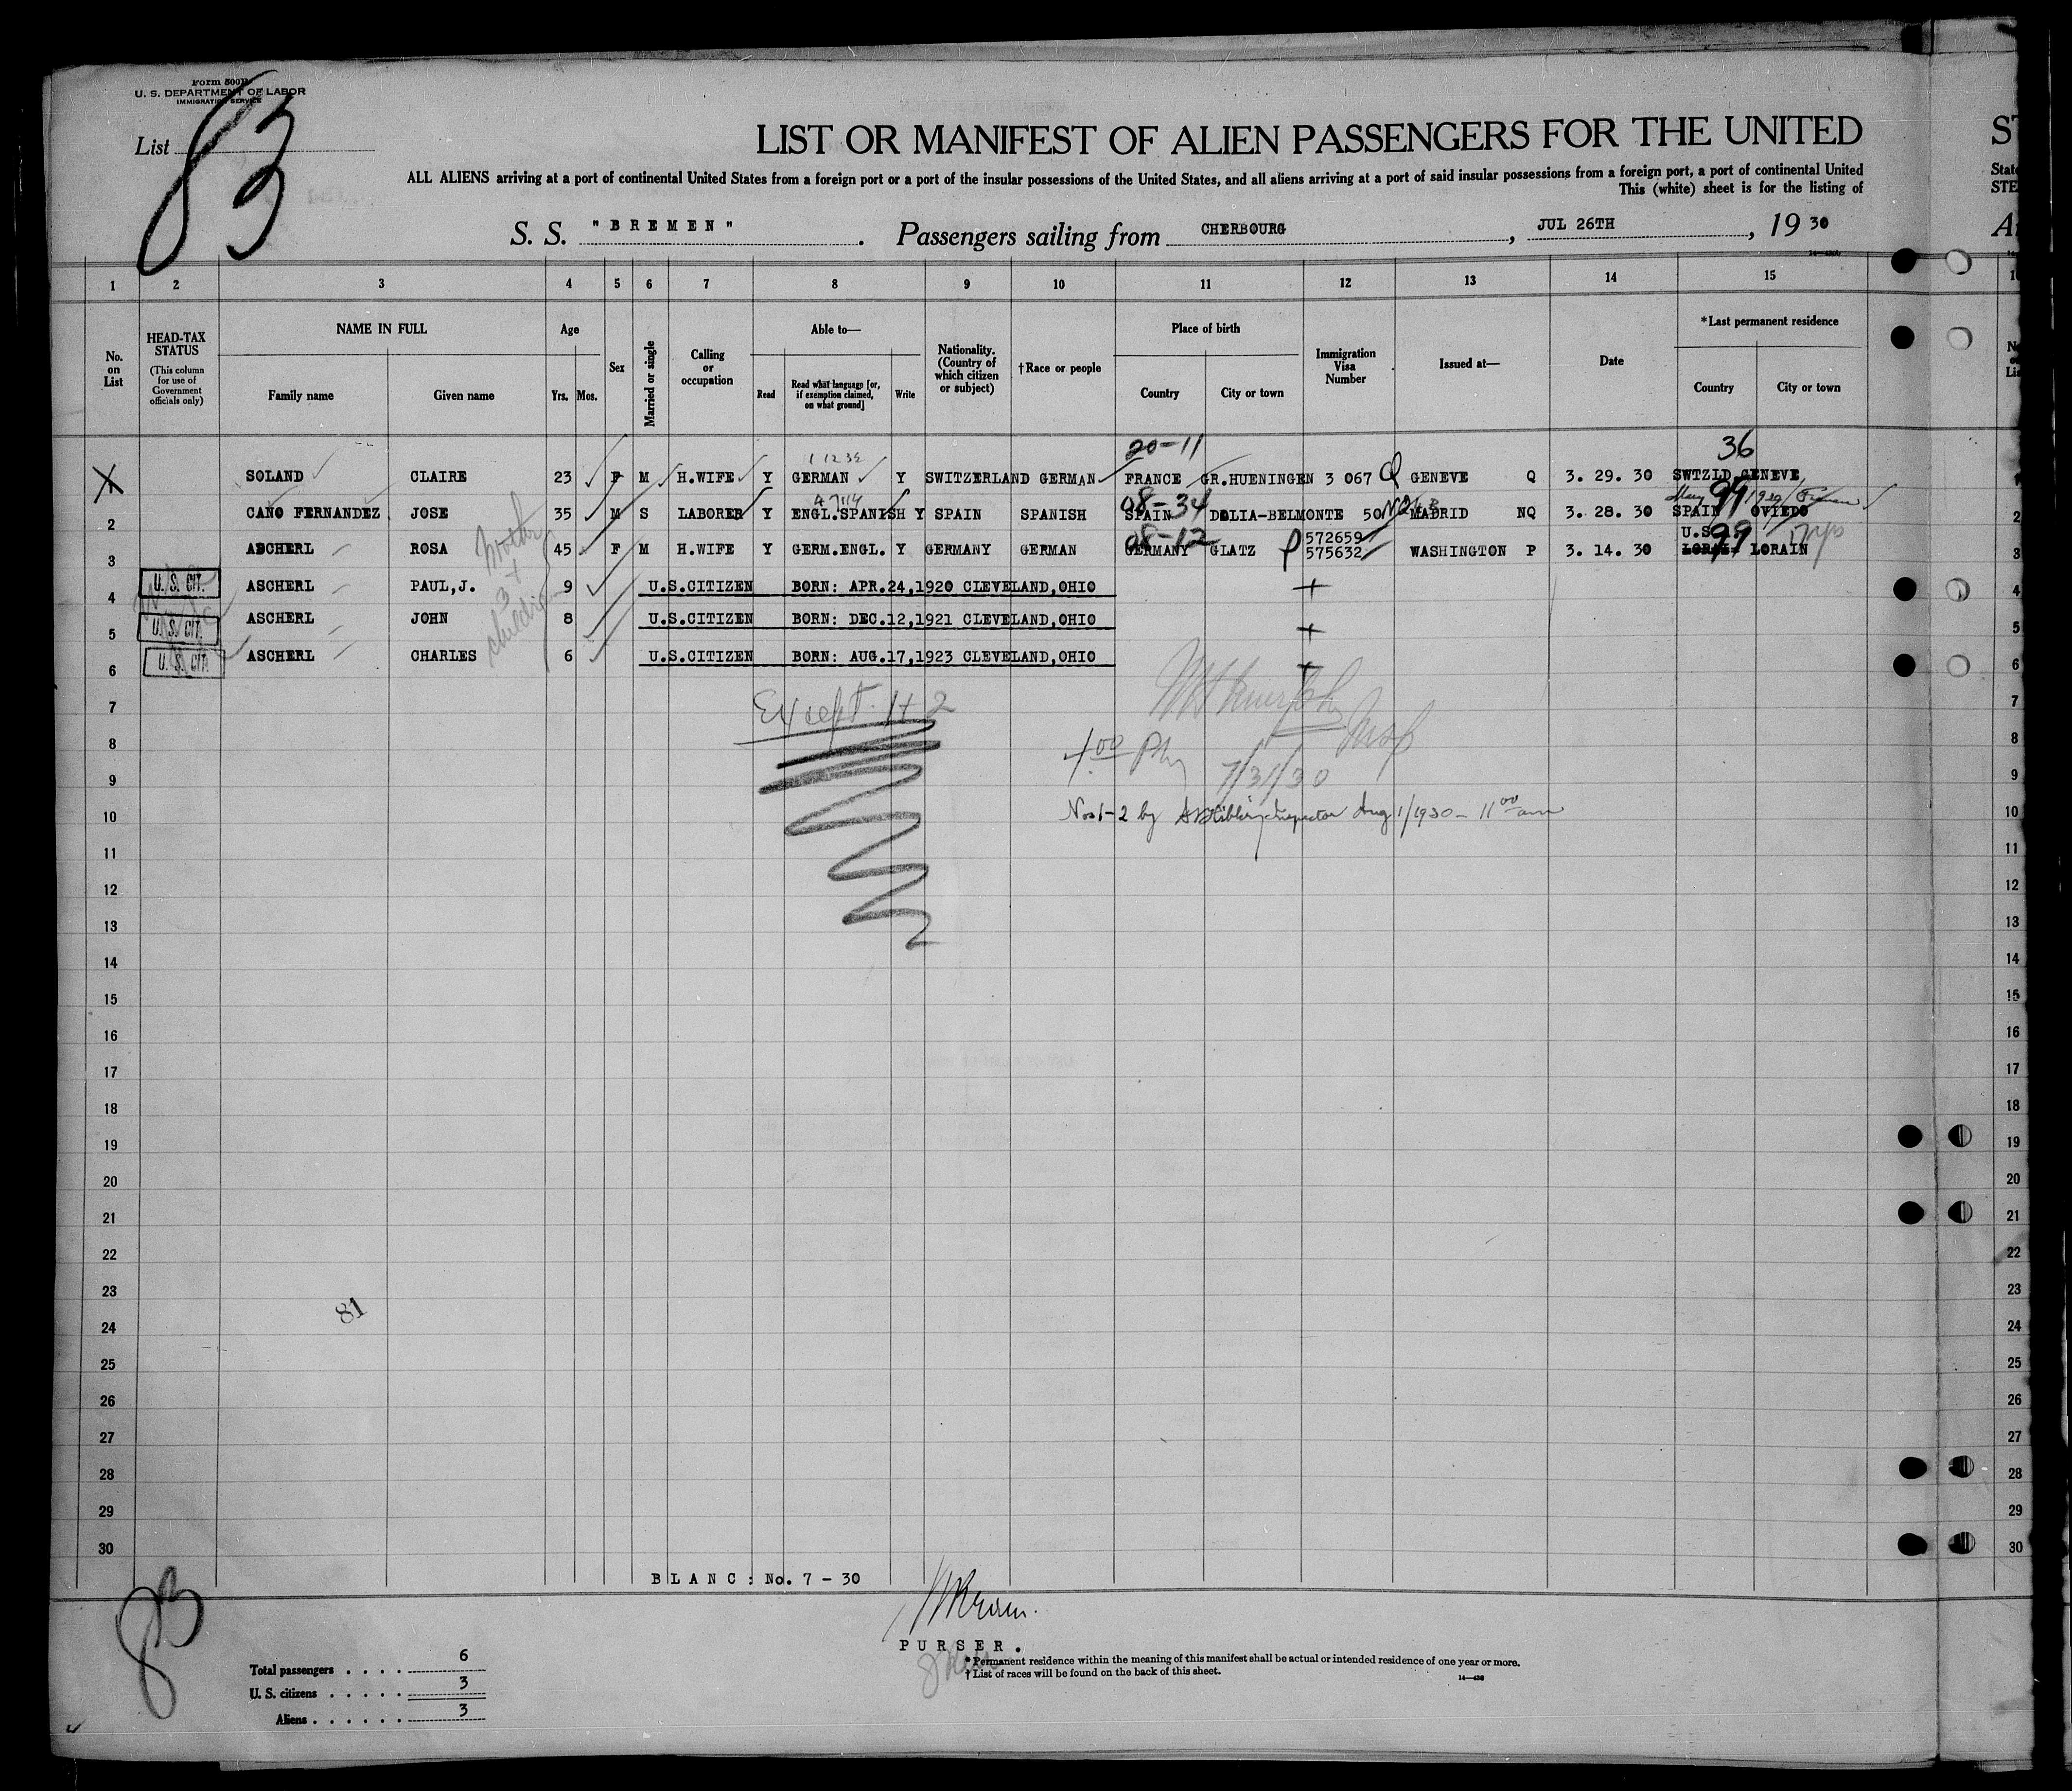 Form 500B
U. S. DEPARTMENT OF LABOR
IMMIGRATION SERVICE
List 83
LIST OR MANIFEST OF ALIEN PASSENGERS FOR THE UNITED
ST
ALL ALIENS arriving at a port of continental United States from a foreign port or a port of the insular possessions of the United States, and all aliens arriving at a port of said insular possessions from a foreign port, a port of continental United
State
This (white) sheet is for the listing of
STE
S. S. "BREMEN". Passengers sailing from CHERBOURG, JUL 26TH, 19 30
1 2 3 4 5 6 7 8 9 10 11 12 13 14 15
No. on List
HEAD-TAX STATUS
(This column for use of Government officials only)
NAME IN FULL
Family name Given name
Age
Yrs. Mos.
Sex
Married or single
Calling or occupation
Able to—
Read
Read what language [or, if exemption claimed, on what ground]
Write
Nationality. (Country of which citizen or subject)
†Race or people
Place of birth
Country City or town
Immigration Visa Number
Issued at—
Date
*Last permanent residence
Country City or town
20-11 36
1 SOLAND CLAIRE 23 F M H.WIFE Y GERMAN Y SWITZERLAND GERMAN FRANCE GR.HUENINGEN 3 067 Q GENEVE Q 3. 29. 30 SWTZLD GENEVE 1
08-34 99
2 CANO FERNANDEZ JOSE 35 M S LABORER Y ENGL.SPANISH Y SPAIN SPANISH SPAIN DOLIA-BELMONTE 50 MADRID NQ 3. 28. 30 SPAIN OVIEDO 2
08-12 U.S. 99
3 ASCHERL ROSA 45 F M H.WIFE Y GERM.ENGL. Y GERMANY GERMAN GERMANY GLATZ P 572659 575632 WASHINGTON P 3. 14. 30 LORAIN 3
Mother 3 children
4 U. S. CIT. ASCHERL PAUL,J. 9 U.S.CITIZEN BORN: APR.24,1920 CLEVELAND,OHIO 4
5 U. S. CIT. ASCHERL JOHN 8 U.S.CITIZEN BORN: DEC.12,1921 CLEVELAND,OHIO 5
6 U. S. CIT. ASCHERL CHARLES 6 U.S.CITIZEN BORN: AUG.17,1923 CLEVELAND,OHIO 6
7 Except 1 + 2 7
8 8
9 4 00 PM 7/31/30 9
10 Nos 1-2 by Inspector Aug 1/1930 - 11 00 am 10
11 11
12 12
13 13
14 14
15 15
16 16
17 17
18 18
19 19
20 20
21 21
22 22
23 23
81
24 24
25 25
26 26
27 27
28 28
29 29
30 30
BLANC: No. 7 - 30
83
PURSER.
Total passengers . . . . 6
U. S. citizens . . . . . 3
Aliens . . . . . . 3
* Permanent residence within the meaning of this manifest shall be actual or intended residence of one year or more.
† List of races will be found on the back of this sheet.